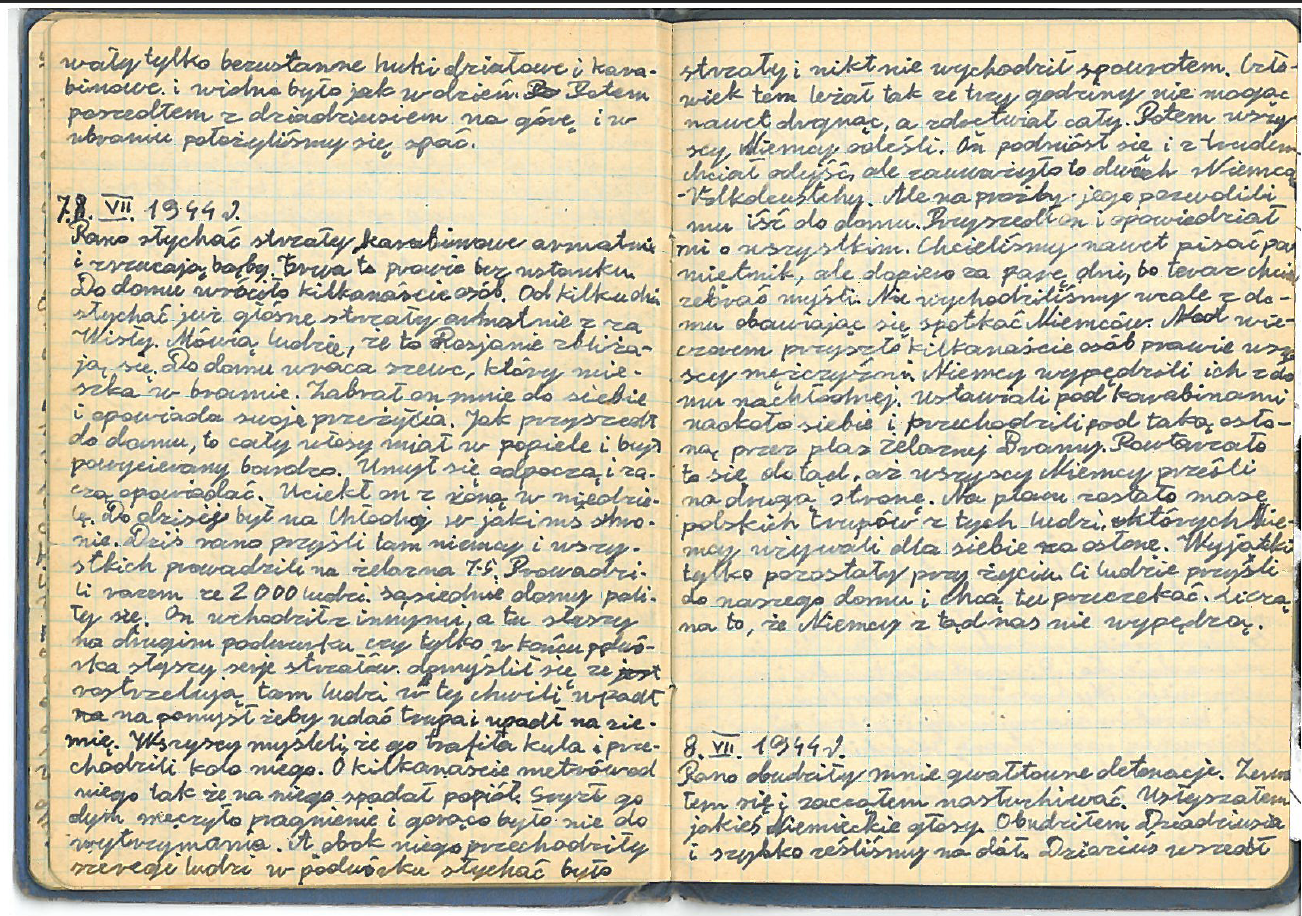 wały tylko bezustanne huki działowe i kara-
binowe. i widno było jak w dzień. Potem
poszedłem z dziadziusiem na górę i w
ubraniu położyliśmy się spać.
7.8. VII. 1944 r.
Rano słychać strzały karabinowe armatnie
i zrzucają bąby. Trwa to prawie bez ustanku
Do domu wróciło kilkanaście osób. Od kilku dni
słychać już głośne strzały armatnie z za
Wisły. Mówią ludzie, że to Rosjanie zbliża-
ją się. Do domu wraca szewc, który mie-
szka w bramie. Zabrał on mnie do siebie
i opowiada swoje przeżycia. Jak przyszedł
do domu, to cały włosy miał w popiele i był
powycierany bardzo. Umył się odpoczą i za-
czą opowiadać. Uciekł on z żoną w niedzie-
lę. Do dzisiej był na Chłodnej w jakimś schro-
nie. Dziś rano przyśli tam niemcy i wszy-
stkich prowadzili na żelazna 75. Prowadzi-
li razem ze 2000 ludzi. sąsiednie domy pali-
ły się. On wchodził z innymi, a tu słyszy
na drugim podwurku czy tylko w końcu podwó-
rka słyszy serje strzałów. domyślił się że jest
rostrzelują tam ludzi w tej chwili wpadł
na na pomysł żeby udać trupa i upadł na zie-
mię. Wszyscy myśleli, że go trafiła kula i prze-
chodzili koło niego. O kilkanaście metrów od
niego tak że na niego spadał popiół. Gryzł go
dym męczyło pragnienie i gorąco było nie do
wytrzymania. A obok niego przechodziły
szeregi ludzi w podwórku słychać było
strzały i nikt nie wychodził spowrotem. Czło-
wiek ten leżał tak ze trzy godziny nie mogąc
nawet drgnąc, a zdrętwiał cały. Potem wszy
scy Niemcy odeśli. On podniósł się i z trudem
chciał odejść, ale zauważyło to dwóch Niemcą
-Volkdeutchy. Ale na prożby jego pozwolili
mu iść do domu. Przyszedł on i opowiedział
mi o wszystkim. Chcieliśmy nawet pisać pa
miętnik, ale dopiero za parę dni, bo teraz chciał
zebrać myśli. Nie wychodziliśmy wcale z do-
mu obawiając się spotkać Niemców. Nad wie-
czorem przyszło kilkanaście osób prawie wszy
scy męzczyźni. Niemcy wypędzili ich z do
mu na chłodnej. ustawiali pod karabinami
naokoło siebie i przechodzili pod taką osło-
ną przez plac żelaznej Bramy. Powtarzało
to się dotąd, aż wszyscy Niemcy prześli
na drugą stronę. Na placu zostało masę
polskich trupów z tych ludzi, których Nie-
mcy używali dla siebie za osłonę. Wyjątki
tylko pozostały przy życiu. Ci ludzie przyśli
do naszego domu i chcą tu przeczekać. Liczą
na to, że Niemcy z tąd nas nie wypędzą.
8. VII. 1944 r.
Rano obudziły mnie gwałtowne detonacje. Zerwa
łem się i zacząłem nasłuchiwać. Usłyszałem
jakieś Niemieckie głosy. Obudziłem Dziadziusia
i szybko ześliśmy na dół. Dziaduś wszedł